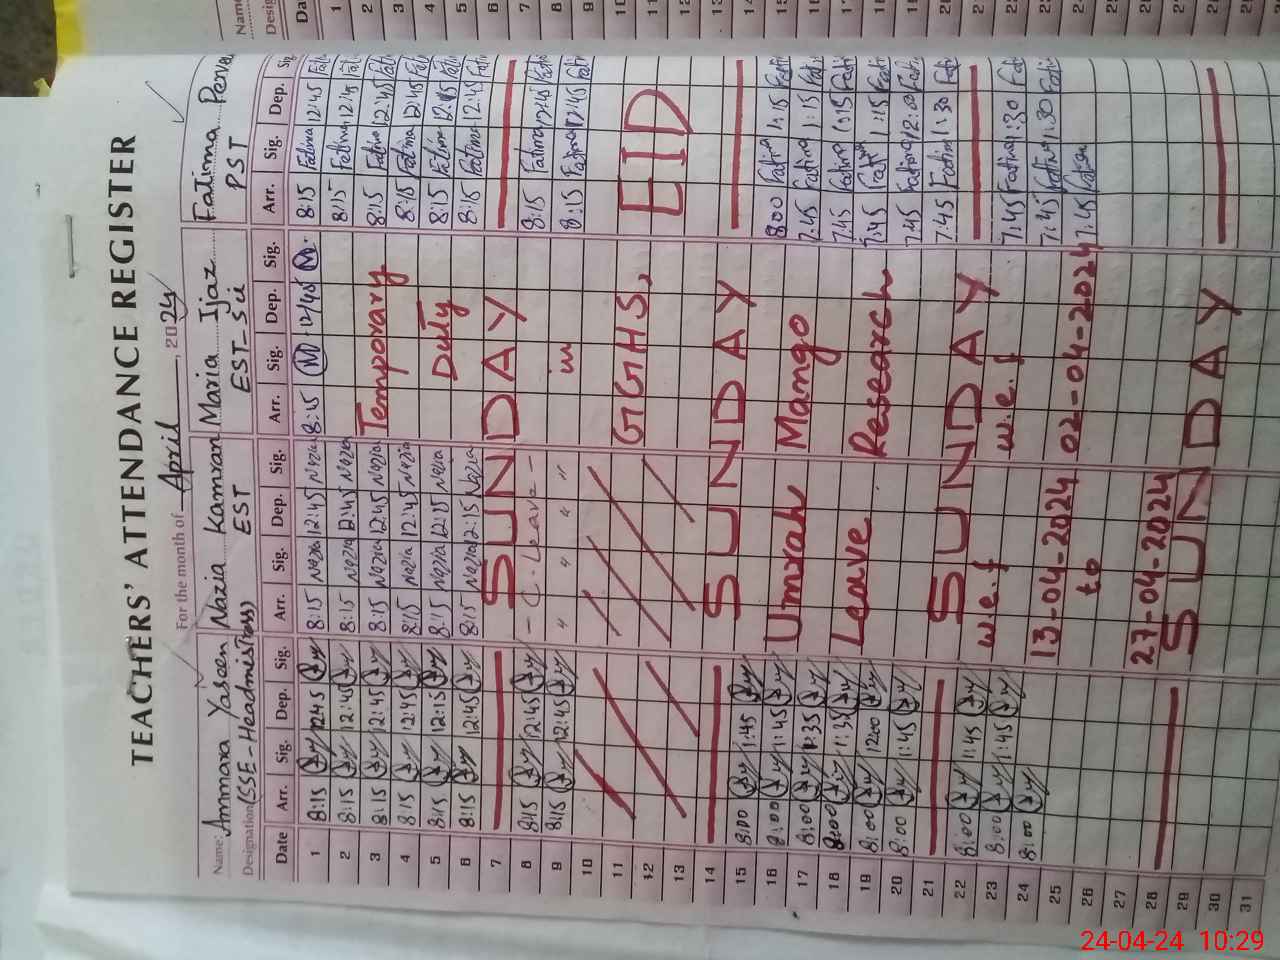 TEACHERS' ATTENDANCE REGISTER
For the month of April, 2024
Name: Ammara Yaseen Nazia Kamran Maria Ijaz Fatima
Designation (SSE-Headmistress) EST EST-Sci PST
Date Arr. Sig. Dep. Sig. Arr. Sig. Dep. Sig. Arr. Sig. Dep. Sig. Arr. Sig. Dep. Sig.
1 8:15 12:45 8:15 Nazia 12:45 Nazia 8:15 M 12:45 M. 8:15 Fatima 12:45
2 8:15 12:45 8:15 Nazia 12:45 Nazia 8:15 Fatima 12:45
3 8:15 12:45 8:15 Nazia 12:45 Nazia Temporary 8:15 Fatima 12:45
4 8:15 12:45 8:15 Nazia 12:45 Nazia 8:15 Fatima 12:45
5 8:15 12:15 8:15 Nazia 12:15 Nazia Duty 8:15 Fatima 12:15
6 8:15 12:45 8:15 Nazia 12:15 Nazia 8:15 Fatima 12:45
7 SUNDAY
8 8:15 12:45 - C. Leave - 8:15 Fatima 12:45
9 8:15 12:45 " " " " in 8:15 Fatima 12:45
10
11 GGHS, EID
12
13
14 SUNDAY
15 8:00 1:45 8:00 Fatima 1:15
16 8:00 1:45 Umrah Mango 7:45 Fatima 1:15
17 8:00 1:35 7:45 Fatima 1:15
18 8:00 1:35 Leave Research 7:45 1:15
19 8:00 1200 7:45 Fatima 12:00
20 8:00 1:45 7:45 Fatima 1:30
21 SUNDAY
22 8:00 1:45 w.e.f w.e.f 7:45 Fatima 1:30
23 8:00 1:45 7:45 Fatima 1:30
24 8:00 13-04-2024 02-04-2024 7:45 Fatima
25 to
26
27 27-04-2024
28 SUNDAY
29
30
31
Name
Desig
Da
1
2
3
4
5
6
7
8
9
10
11
12
13
14
15
16
17
18
19
20
21
22
23
24
25
26
27
28
29
30
31
24-04-24 10:29